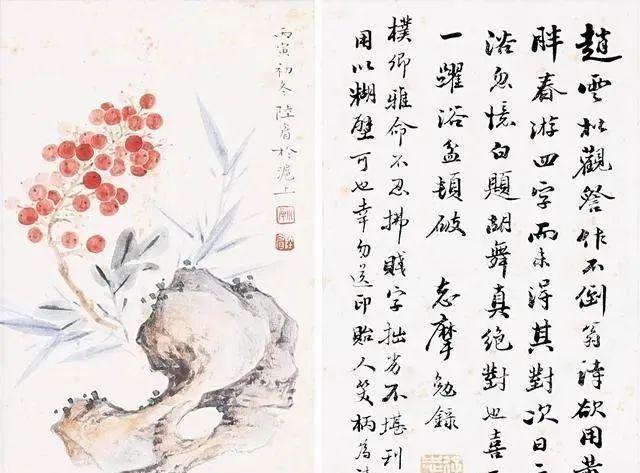 趙雲松觀作不倒翁詩欲用黃
胖春游四字而未得其對次日
浴忽憶白題胡舞真絕對也喜
一躍浴盆頓破 志摩勉錄
樸卿雅命不忍拂賤字拙劣不堪
用以糊壁可也幸勿送印貽人笑柄為
丙寅初冬陸眉於滬上